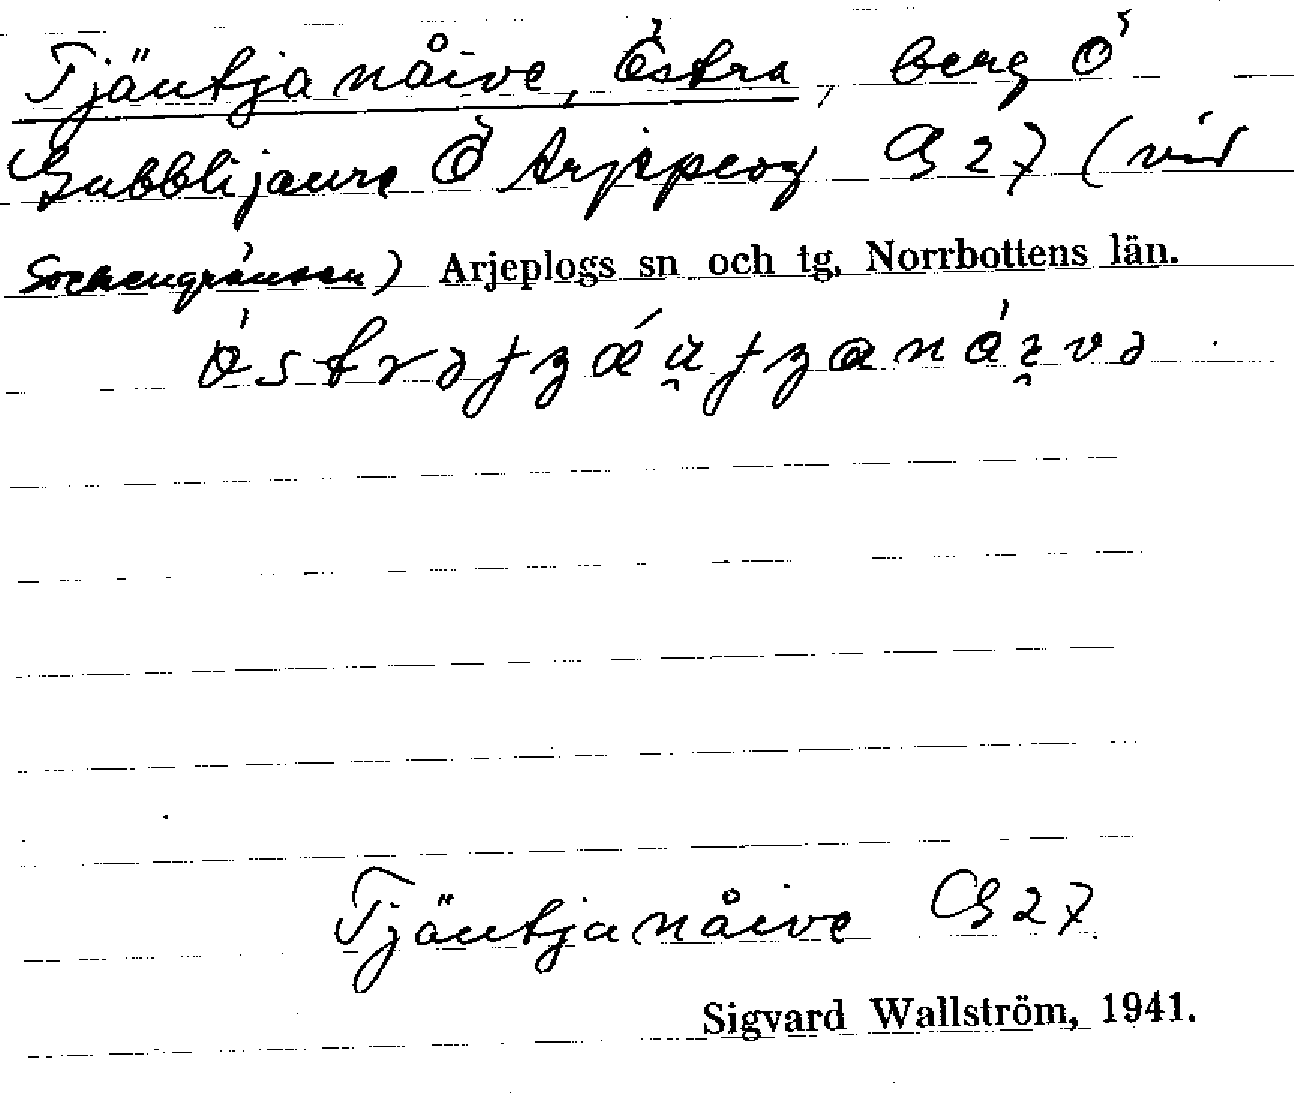 Tjäutjanåive, Östra, berg Ö
Gubblijaure Ö Arjeplog GB 27 (vid
sockengränsen) Arjeplogs sn och tg. Norrbottens län.
Tjäutjanåive GB 27
Sigvard Wallström, 1941.